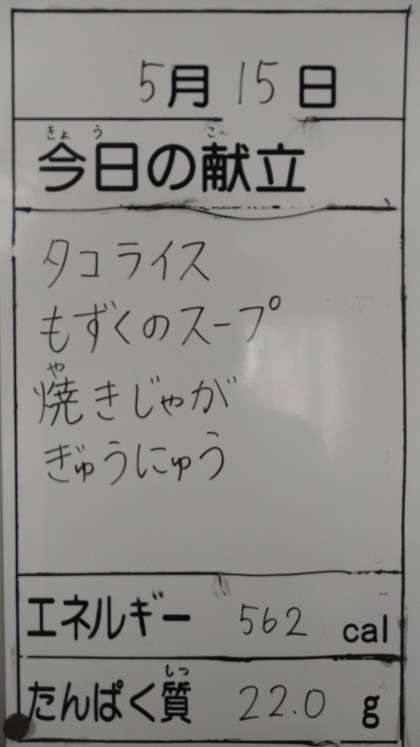 5月15日
きょう
今日の献立
タコライス
もずくのスープ
や
焼きじゃが
ぎゅうにゅう
エネルギー 562 cal
しつ
たんぱく質 22.0 g